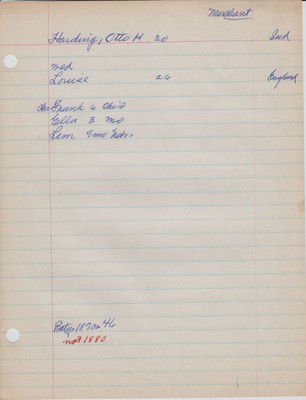 Merchant
Harding, Otto H 30 Ind
med
Louise 26 England
Ch Frank 6 Ch'o
Ella 3 mo
Lem 9mo Nebr.
1870 46
not 1880